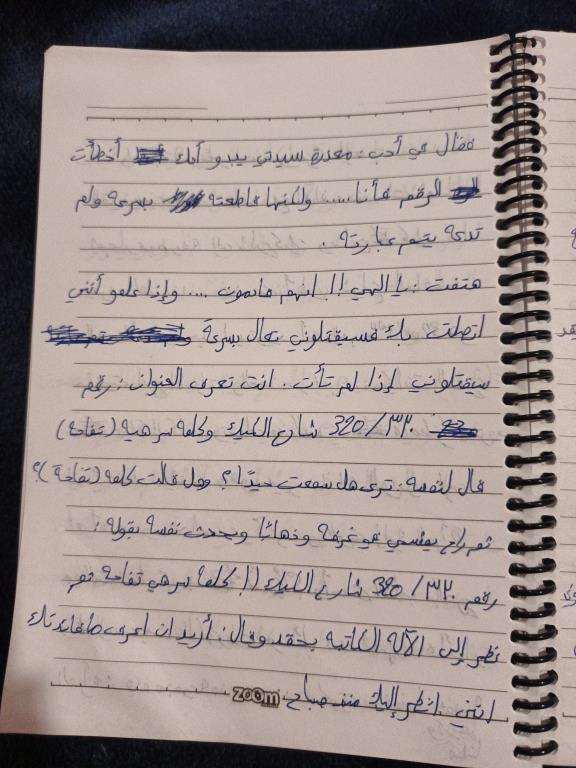 فقال في أدب: معذرة سيدتي يبدو أنك أخطأت
الرقم فأنا..... ولكنها قاطعته بسرعة ولم
تدعه يتم عبارته.
هتفت: يا إلهي!! انهم قادمون .... وإذا علمو أنني
اتصلت بك فسيقتلوني تعال بسرعة
سيقتلوني إذا لم تأت. انت تعرف العنوان: رقم
320/٣٢٠ شارع الكيك وكلمة سر هي (تفاحة)
قال لنفسه: ترى هل سمعت جيدًا؟ وهل قالت كلمة (تفاحة)؟
ثم راح يمشي في غرفة وذهابًا ويحدث نفسه بقوله:
رقم 320/٣٢٠ شارع الكيك!! كلمة سر هي تفاحة ثم
نظر إلى الآلة الكاتبة بحقد وقال: أريد ان اعرف ما فائدتك
انني انظر إليك منذ صباح
zoom